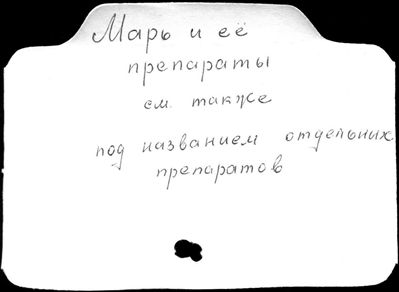 Марь и её
препараты
см. также
под названием отдельных
препаратов